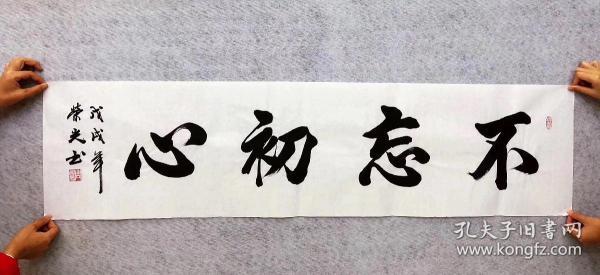 不忘初心
戊戌年
荣光书
孔夫子旧书网
www.kongfz.com